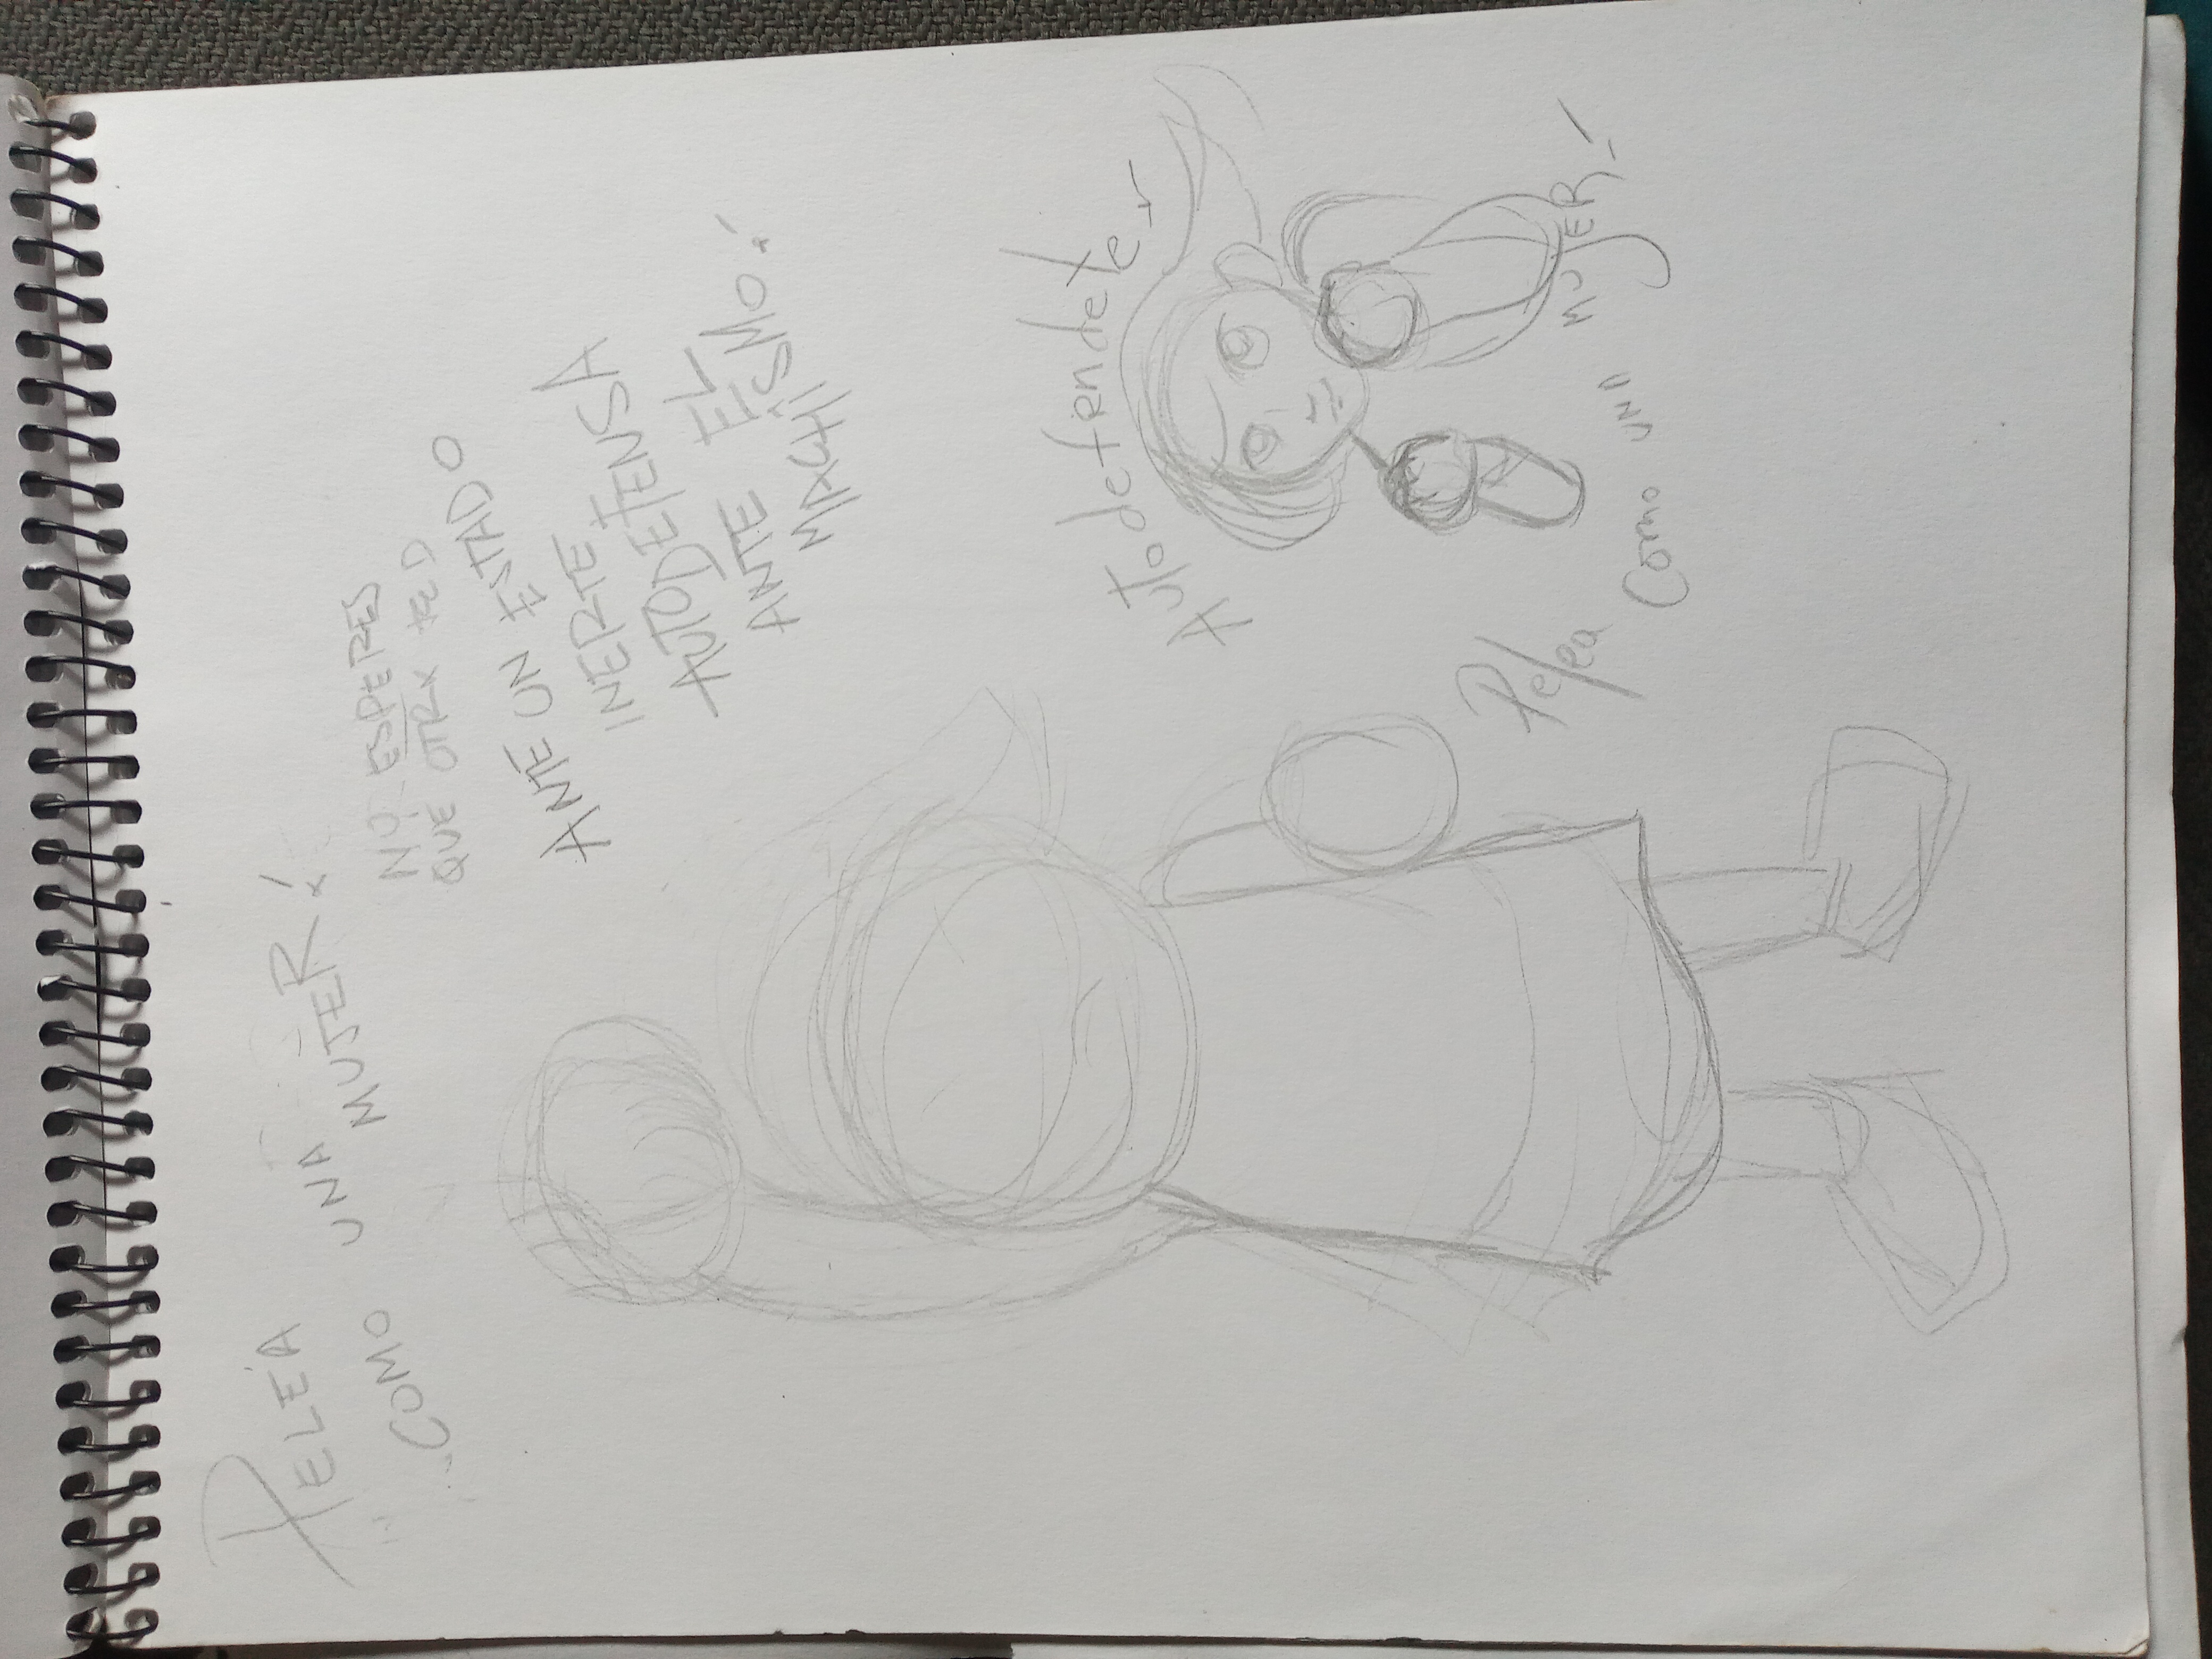 PELEA
COMO UNA MUJER!
NO ESPERES
QUE OTRX TE D
ANTE UN ESTADO
INERTE
AUTODEFENSA
ANTE EL
MACHISMO!
Autodefendete
Pelea
Como una
MUJER!